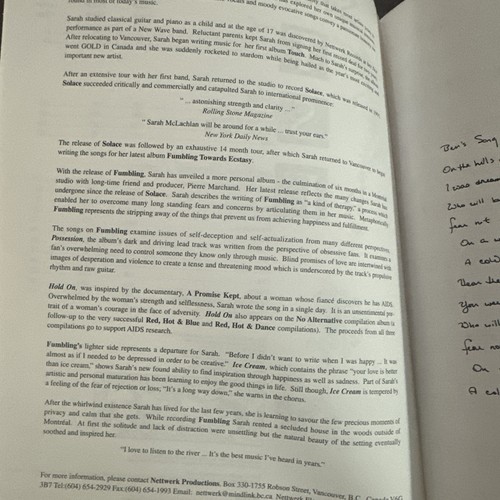 found in most of today's music.
and moody evocative songs
explored her own unique
Sarah studied classical guitar and piano as a child and at the age of 17 was discovered by Nettwerk Records
performance as part of a New Wave band. Reluctant parents kept Sarah from signing her first record deal for
After relocating to Vancouver, Sarah began writing music for her first album Touch. Much to Sarah's surprise, the album
went GOLD in Canada and she was suddenly rocketed to stardom while being hailed as the year's most exciting and
important new artist.
After an extensive tour with her first band, Sarah returned to the studio to record Solace, which was released in 1991.
Solace succeeded critically and commercially and catapulted Sarah to international prominence:
"... astonishing strength and clarity ..."
Rolling Stone Magazine
"Sarah McLachlan will be around for a while ... trust your ears."
New York Daily News
The release of Solace was followed by an exhaustive 14 month tour, after which Sarah returned to Vancouver to begin
writing the songs for her latest album Fumbling Towards Ecstasy.
With the release of Fumbling, Sarah has unveiled a more personal album - the culmination of six months in a Montréal
studio with long-time friend and producer, Pierre Marchand. Her latest release reflects the many changes Sarah has
undergone since the release of Solace. Sarah describes the writing of Fumbling as "a kind of therapy," a process which
enabled her to overcome many long standing fears and concerns by articulating them in her music. Metaphorically,
Fumbling represents the stripping away of the things that prevent us from achieving happiness and fulfillment.
The songs on Fumbling examine issues of self-deception and self-actualization from many different perspectives.
Possession, the album's dark and driving lead track was written from the perspective of obsessive fans. It examines a
fan's overwhelming need to control someone they know only through music. Blind promises of love are intertwined with
images of desperation and violence to create a tense and threatening mood which is underscored by the track's propulsive
rhythm and raw guitar.
Hold On, was inspired by the documentary, A Promise Kept, about a woman whose fiancé discovers he has AIDS.
Overwhelmed by the woman's strength and selflessness, Sarah wrote the song in a single day. It is an unsentimental por-
trait of a woman's courage in the face of adversity. Hold On also appears on the No Alternative compilation album (a
follow-up to the very successful Red, Hot & Blue and Red, Hot & Dance compilations). The proceeds from all three
compilations go to support AIDS research.
Fumbling's lighter side represents a departure for Sarah. "Before I didn't want to write when I was happy .. It was
almost as if I needed to be depressed in order to be creative." Ice Cream, which contains the phrase "your love is better
than ice cream," shows Sarah's new found ability to find inspiration through happiness as well as sadness. Part of Sarah's
artistic and personal maturation has been learning to enjoy the good things in life. Still though, Ice Cream is tempered by
a feeling of the fear of rejection or loss; "It's a long way down," she warns in the chorus.
After the whirlwind existence Sarah has lived for the last few years, she is learning to savour the few precious moments of
privacy and calm that she gets. While recording Fumbling Sarah rented a secluded house in the woods outside of
Montréal. At first the solitude and lack of distraction were unsettling but the natural beauty of the setting eventually
soothed and inspired her.
"I love to listen to the river ... It's the best music I've heard in years."
For more information, please contact Nettwerk Productions, Box 330-1755 Robson Street, Vancouver, B.C., Canada V6G
3B7 Tel:(604) 654-2929 Fax:(604) 654-1993 Email: nettwerk@mindlink.bc.ca
Ben's Song
On the hills
I was dream
Who will
fear not
On a
A cold
Dear the
You were
Who will
fear no
On
A col